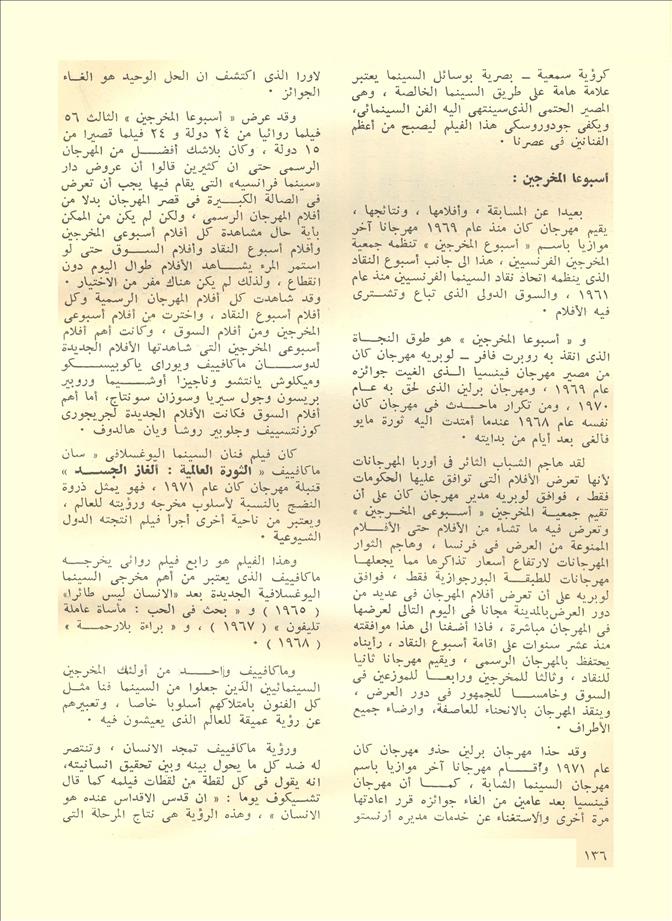 كرؤية سمعية ـ بصرية بوسائل السينما يعتبر
علامة هامة على طريق السينما الخالصة ، وهى
المصير الحتمى الذى سينتهى اليه الفن السينمائى،
ويكفى جودوروسكى هذا الفيلم ليصبح من أعظم
الفنانين فى عصرنا ٠
أسبوعا المخرجين :
بعيدا عن المسابقة ، وأفلامها ، ونتائجها ،
يقيم مهرجان كان منذ عام ١٩٦٩ مهرجانا آخر
موازيا باسم « أسبوع المخرجين » تنظمه جمعية
المخرجين الفرنسيين ، هذا الى جانب أسبوع النقاد
الذى ينظمه اتحاد نقاد السينما الفرنسيين منذ عام
١٩٦١ ، والسوق الدولى الذى تباع وتشترى
فيه الأفلام ٠
و « أسبوعا المخرجين » هو طوق النجاة
الذى انقذ به روبرت فافر ـ لوبريه مهرجان كان
من مصير مهرجان فينسيا الذى الغيت جوائزه
عام ١٩٦٩ ، ومهرجان برلين الذى لحق به عام
١٩٧٠ ، ومن تكرار ماحدث فى مهرجان كان
نفسه عام ١٩٦٨ عندما أمتدت اليه ثورة مايو
فألغى بعد أيام من بدايته ٠
لقد هاجم الشباب الثائر فى أوربا المهرجانات
لأنها تعرض الأفلام التى توافق عليها الحكومات
فقط ، فوافق لوبريه مدير مهرجان كان على أن
تقيم جمعية المخرجين « أسبوعى المخرجين »
وتعرض فيه ما تشاء من الأفلام حتى الأفلام
الممنوعة من العرض فى فرنسا ، وهاجم الثوار
المهرجانات لارتفاع أسعار تذاكرها مما يجعلها
مهرجانات للطبقة البورجوازية فقط ، فوافق
لوبريه على أن تعرض أفلام المهرجان فى عديد من
دور العرض بالمدينة مجانا فى اليوم التالى لعرضها
فى المهرجان مباشرة ، فاذا أضفنا الى هذا موافقته
منذ عشر سنوات على إقامة أسبوع النقاد ، رأيناه
يحتفظ بالمهرجان الرسمى ، ويقيم مهرجانا ثانيا
للنقاد ، وثالثا للمخرجين ورابعا للموزعين فى
السوق وخامسا للجمهور فى دور العرض ،
وينقذ المهرجان بالانحناء للعاصفة، وارضاء جميع
الأطراف ٠
وقد حذا مهرجان برلين حذو مهرجان كان
عام ١٩٧١ وأقام مهرجانا آخر موازيا باسم
مهرجان السينما الشابة ، كما أن مهرجان
فينسيا بعد عامين من الغاء جوائزه قرر اعادتها
مرة أخرى والاستغناء عن خدمات مديره أرنستو
لاورا الذى اكتشف ان الحل الوحيد هو الغاء
الجوائز ٠
وقد عرض « أسبوعا المخرجين » الثالث ٥٦
فيلما روائيا من ٢٤ دولة و ٢٤ فيلما قصيرا من
١٥ دولة ، وكان بلاشك أفضل من المهرجان
الرسمى حتى ان كثيرين قالوا أن عروض دار
«سينما فرانسيه» التى يقام فيها يجب أن تعرض
فى الصالة الكبيرة فى قصر المهرجان بدلا من
أفلام المهرجان الرسمى ، ولكن لم يكن من الممكن
بأية حال مشاهدة كل أفلام أسبوعى المخرجين
وأفلام أسبوع النقاد وأفلام السوق حتى لو
استمر المرء يشاهد الأفلام طوال اليوم دون
انقطاع ، ولذلك لم يكن هناك مفر من الاختيار ٠
وقد شاهدت كل أفلام المهرجان الرسمية وكل
أفلام أسبوع النقاد ، واخترت من أفلام أسبوعى
المخرجين ومن أفلام السوق ، وكانت أهم أفلام
أسبوعى المخرجين التى شاهدتها الأفلام الجديدة
لدوسان ماكافييف ويوراى ياكوبيسكو
وميكلوش يانتشو وناجيزا أوشيما وروبير
بريسون وجول سيريا وسوزان سونتاج، أما أهم
أفلام السوق فكانت الأفلام الجديدة لجريجورى
كوزنتسييف وجلوبير روشا ويان هالدوف ٠
كان فيلم فنان السينما اليوغسلافى « سان
ماكافييف « الثورة العالمية : ألغاز الجسد »
قنبلة مهرجان كان عام ١٩٧١ ، فهو يمثل ذروة
النضج بالنسبة لأسلوب مخرجه ورؤيته للعالم ،
ويعتبر من ناحية أخرى أجرأ فيلم انتجته الدول
الشيوعية ٠
وهذا الفيلم هو رابع فيلم روائى يخرجه
ماكافييف الذى يعتبر من أهم مخرجى السينما
اليوغسلافية الجديدة بعد «الانسان ليس طائرا»
( ١٩٦٥ ) و « بحث فى الحب : مأساة عاملة
تليفون » ( ١٩٦٧ ) ، و « براءة بلارحمة »
( ١٩٦٨ ) ٠
وماكافييف واحد من أولئك المخرجين
السينمائيين الذين جعلوا من السينما فنا مثل
كل الفنون بامتلاكهم أسلوبا خاصا ، وتعبيرهم
عن رؤية عميقة للعالم الذى يعيشون فيه ٠
ورؤية ماكافييف تمجد الانسان ، وتنتصر
له ضد كل ما يحول بينه وبين تحقيق إنسانيته،
انه يقول فى كل لقطة من لقطات فيلمه كما قال
تشيكوف يوما : « ان قدس الاقداس عنده هو
الانسان » ، وهذه الرؤية هى نتاج المرحلة التى
١٣٦